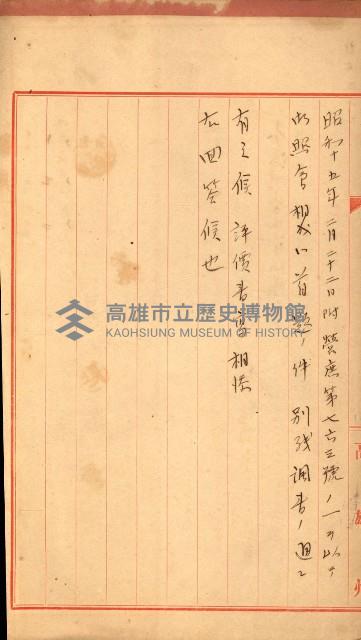 昭和十五年二月二十二日附營庶第七六三號ノ一ヲ以テ
御照會相成候首題ノ件別紙調書ノ通リ
有之候評價書寫相添
右回答候也
高雄市立歷史博物館
KAOHSIUNG MUSEUM OF HISTORY
高雄州